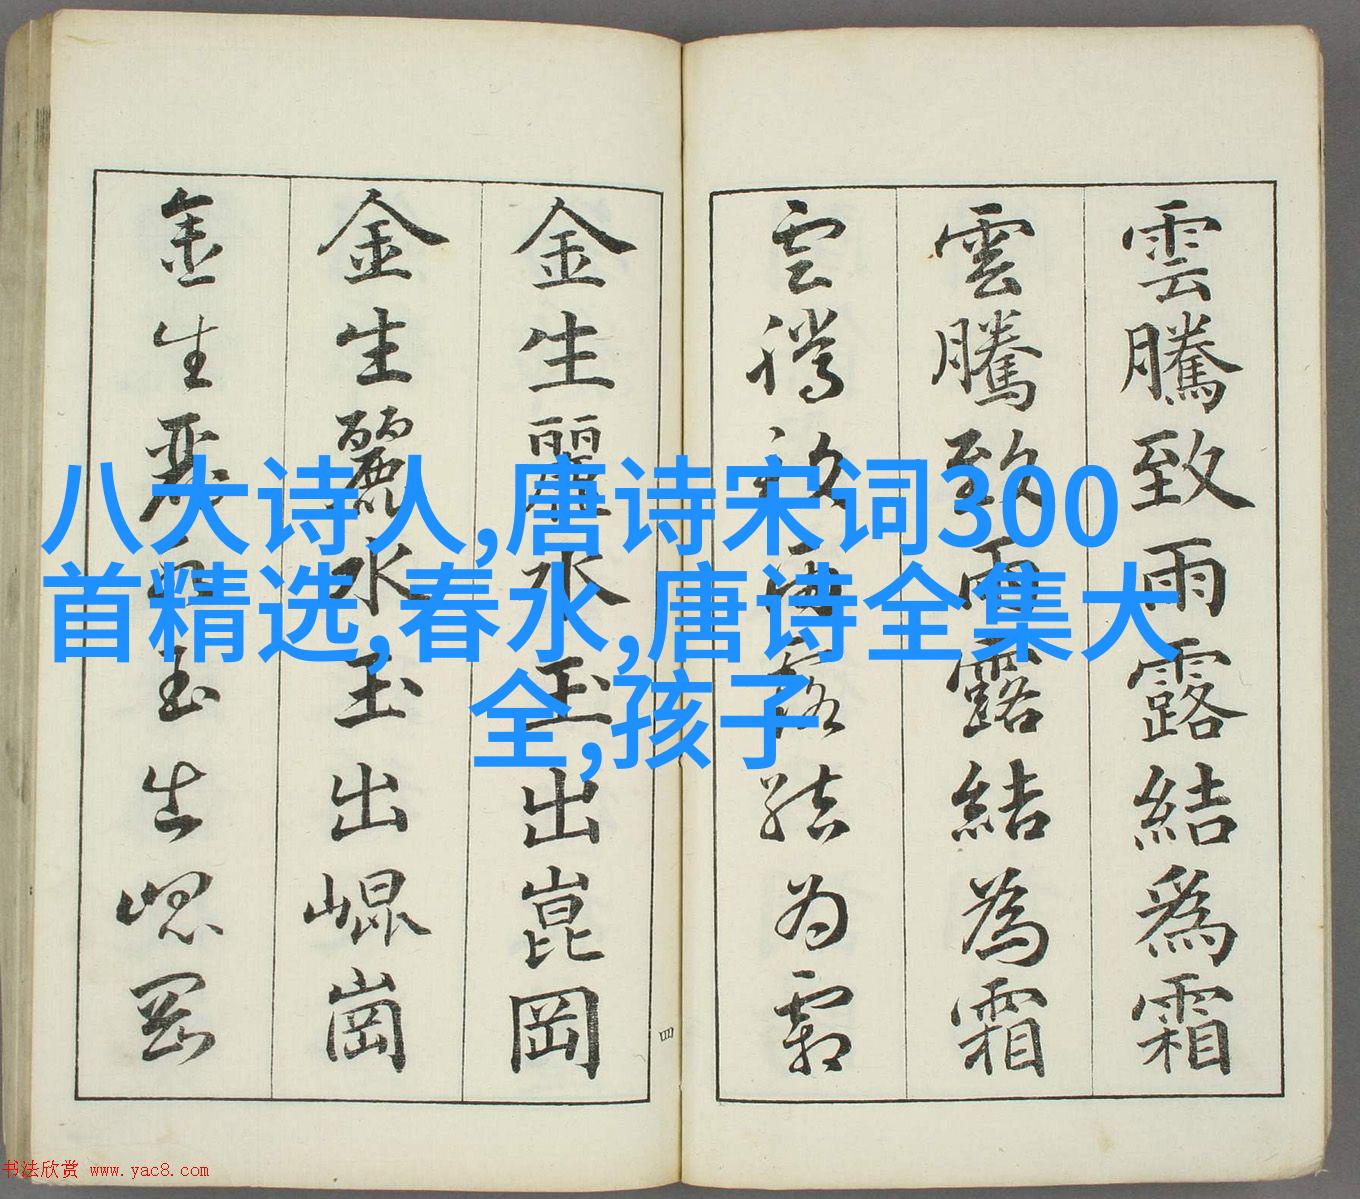 雲騰致雨露結為霜
雲騰致雨露結為霜
雲騰致雨露結为霜
金生麗水玉出崑岡
金生麗水玉出崐崗
金生麗水玉出崐岡
四
八大诗人,唐诗宋词300
首精选,春水,唐诗全集大
全,孩子
书法欣赏 www.yac8.com